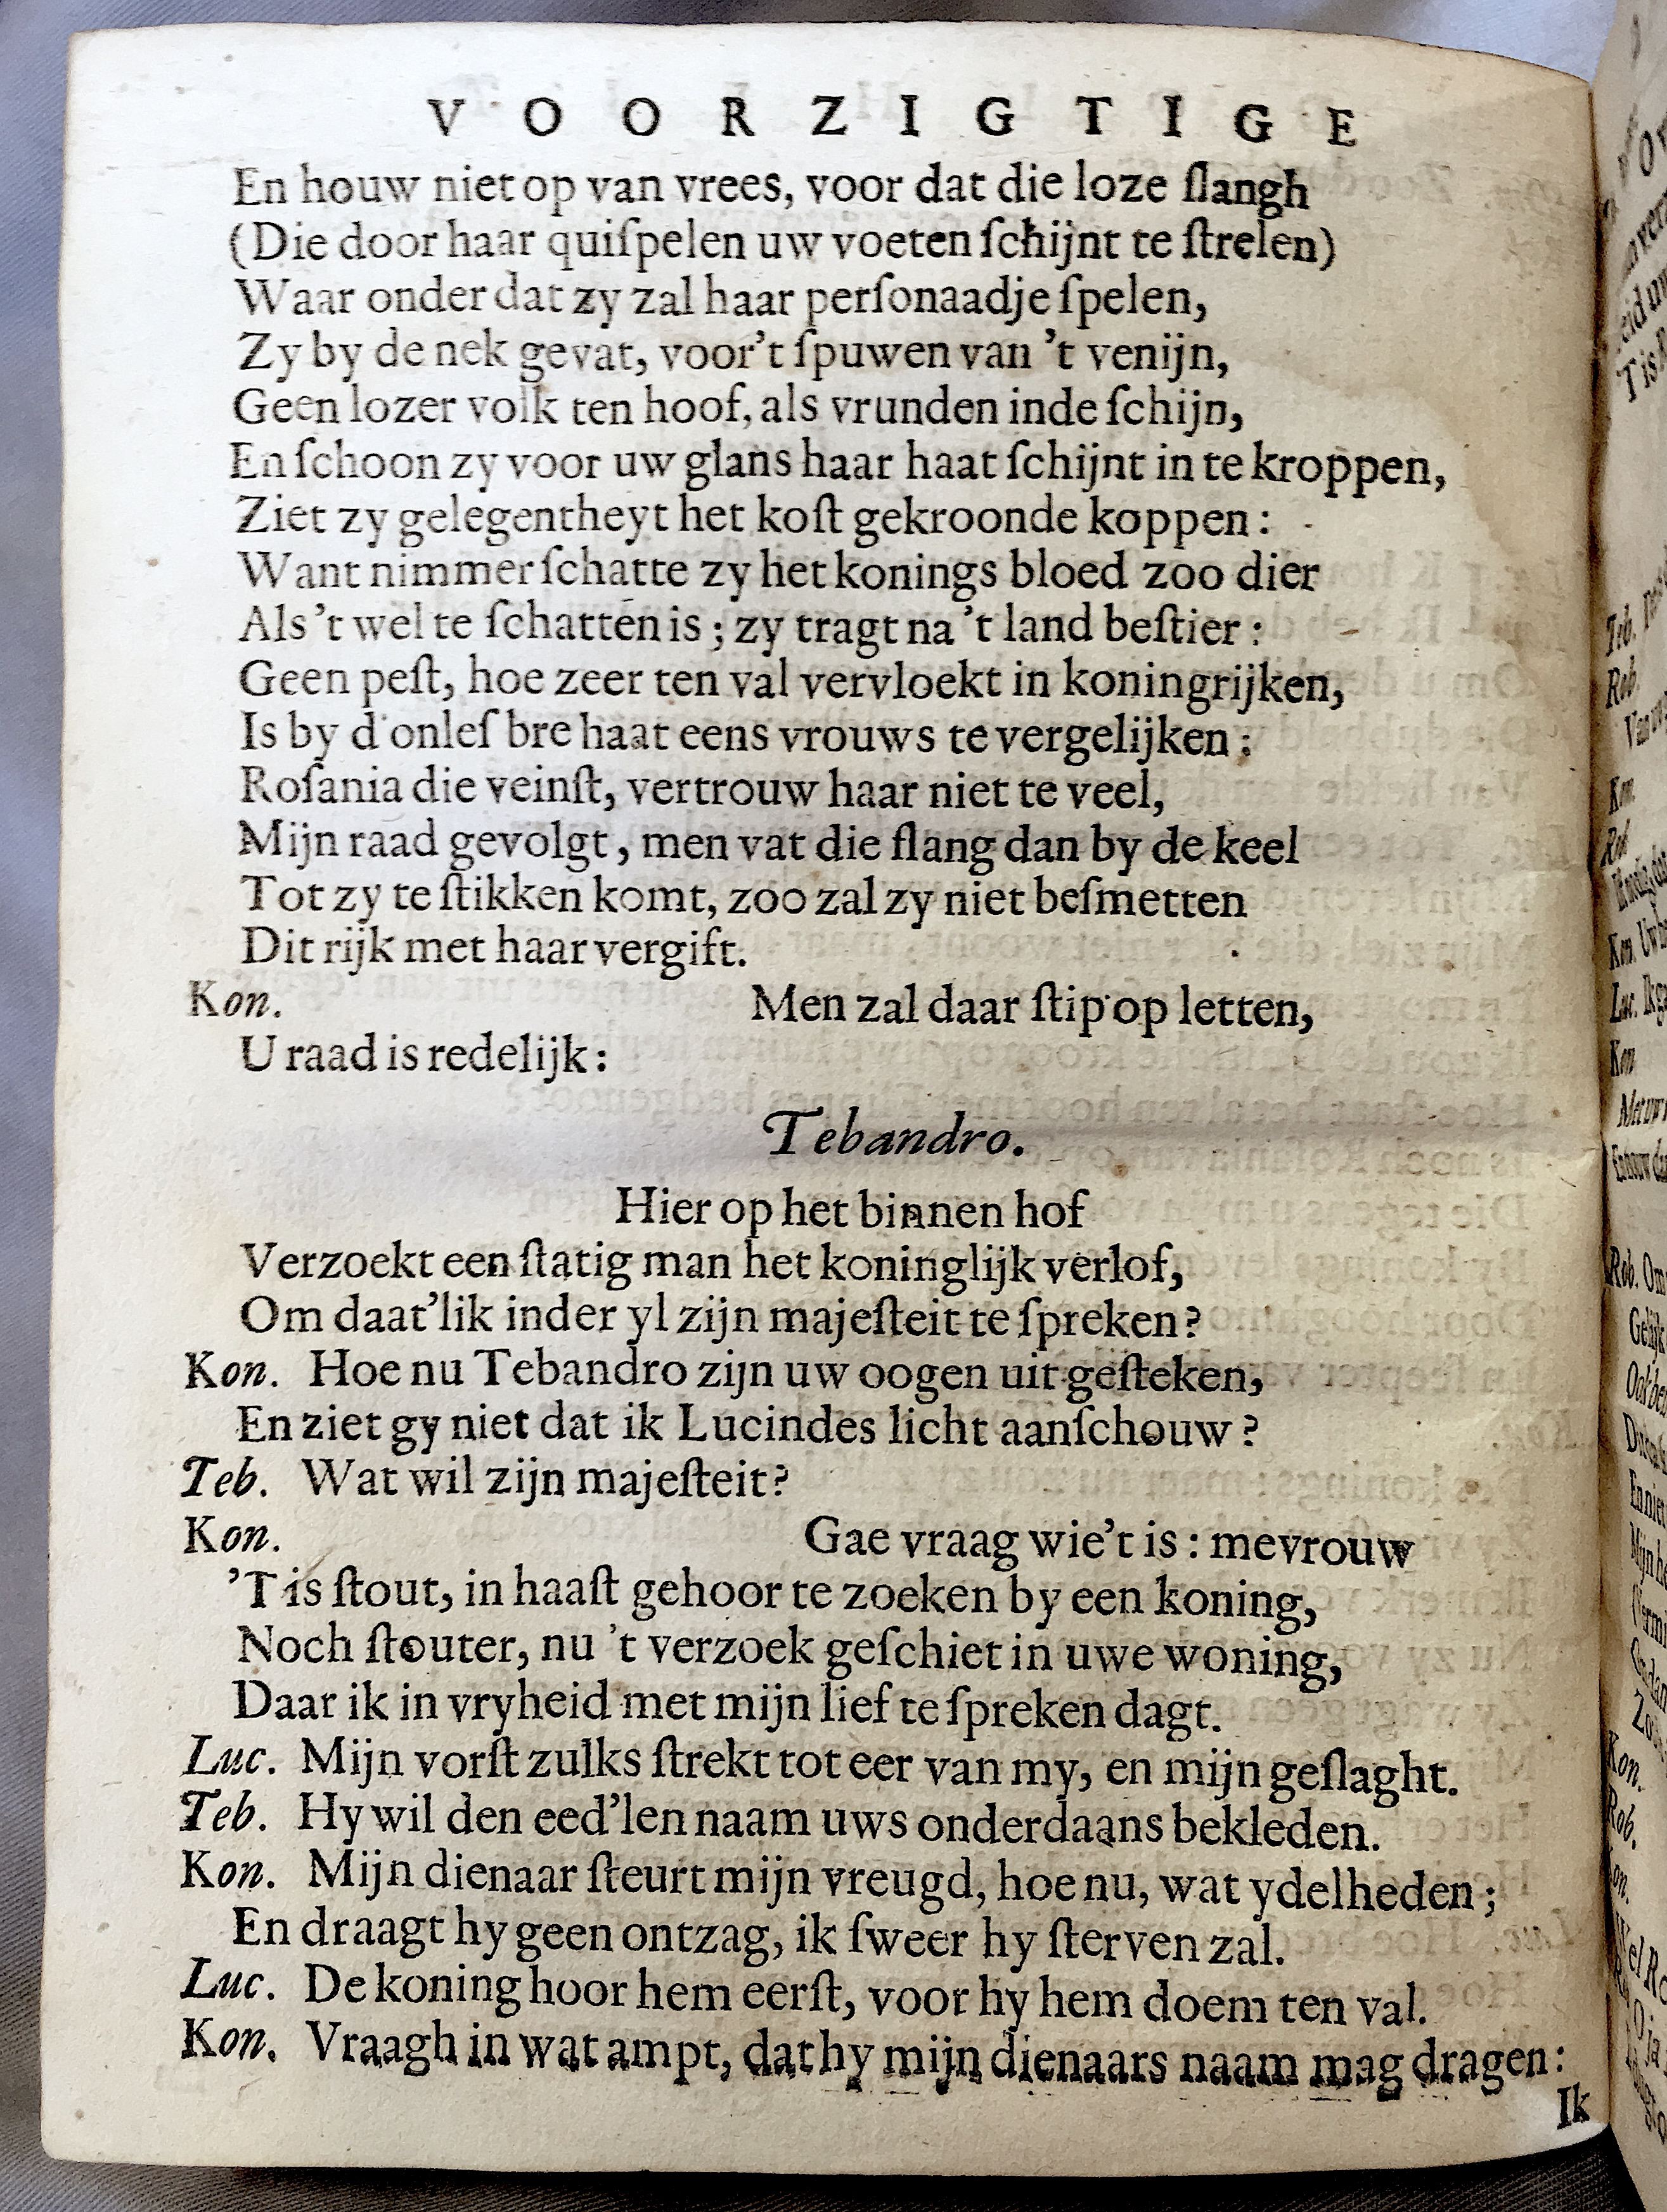 VOORZIGTIGE
En houw niet op van vrees, voor dat die loze ſlangh
(Die door haar quiſpelen uw voeten ſchijnt te ſtrelen)
Waar onder dat zy zal haar perſonaadje ſpelen,
Zy by de nek gevat, voor't ſpuwen van 't venijn,
Geen lozer volk ten hoof, als vrunden inde ſchijn,
En ſchoon zy voor uw glans haar haat ſchijnt in te kroppen,
Ziet zy gelegentheyt het koſt gekroonde koppen:
Want nimmer ſchatte zy het konings bloed zoo dier
Als 't wel te ſchatten is; zy tragt na 't land beſtier:
Geen peſt, hoe zeer ten val vervloekt in koningrijken,
Is by d'onleſ bre haat eens vrouws te vergelijken:
Roſania die veinſt, vertrouw haar niet te veel,
Mijn raad gevolgt, men vat die ſlang dan by de keel
Tot zy te ſtikken komt, zoo zal zy niet beſmetten
Dit rijk met haar vergift.
Kon. Men zal daar ſtip op letten,
U raad is redelijk:
Tebandro.
Hier op het binnen hof
Verzoekt een ſtatig man het koninglijk verlof,
Om daat'lik inder yl zijn majeſteit te ſpreken?
Kon. Hoe nu Tebandro zijn uw oogen uit geſteken,
En ziet gy niet dat ik Lucindes licht aanſchouw?
Teb. Wat wil zijn majeſteit?
Kon. Gae vraag wie't is: mevrouw
'T is ſtout, in haaſt gehoor te zoeken by een koning,
Noch ſtouter, nu 't verzoek geſchiet in uwe woning,
Daar ik in vryheid met mijn lief te ſpreken dagt.
Luc. Mijn vorſt zulks ſtrekt tot eer van my, en mijn geſlaght.
Teb. Hy wil den eed'len naam uws onderdaans bekleden.
Kon. Mijn dienaar ſteurt mijn vreugd, hoe nu, wat ydelheden;
En draagt hy geen ontzag, ik ſweer hy ſterven zal.
Luc. De koning hoor hem eerſt, voor hy hem doem ten val.
Kon. Vraagh in wat ampt, dat hy mijn dienaars naam mag dragen:
Ik